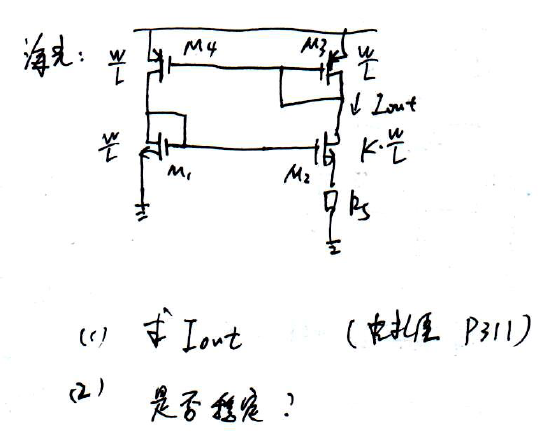 海光:
W/L M4 M3 W/L
↓ Iout
W/L M1 M2 K·W/L
Rs
(1) 求 Iout (拉扎维 P311)
(2) 是否稳定?